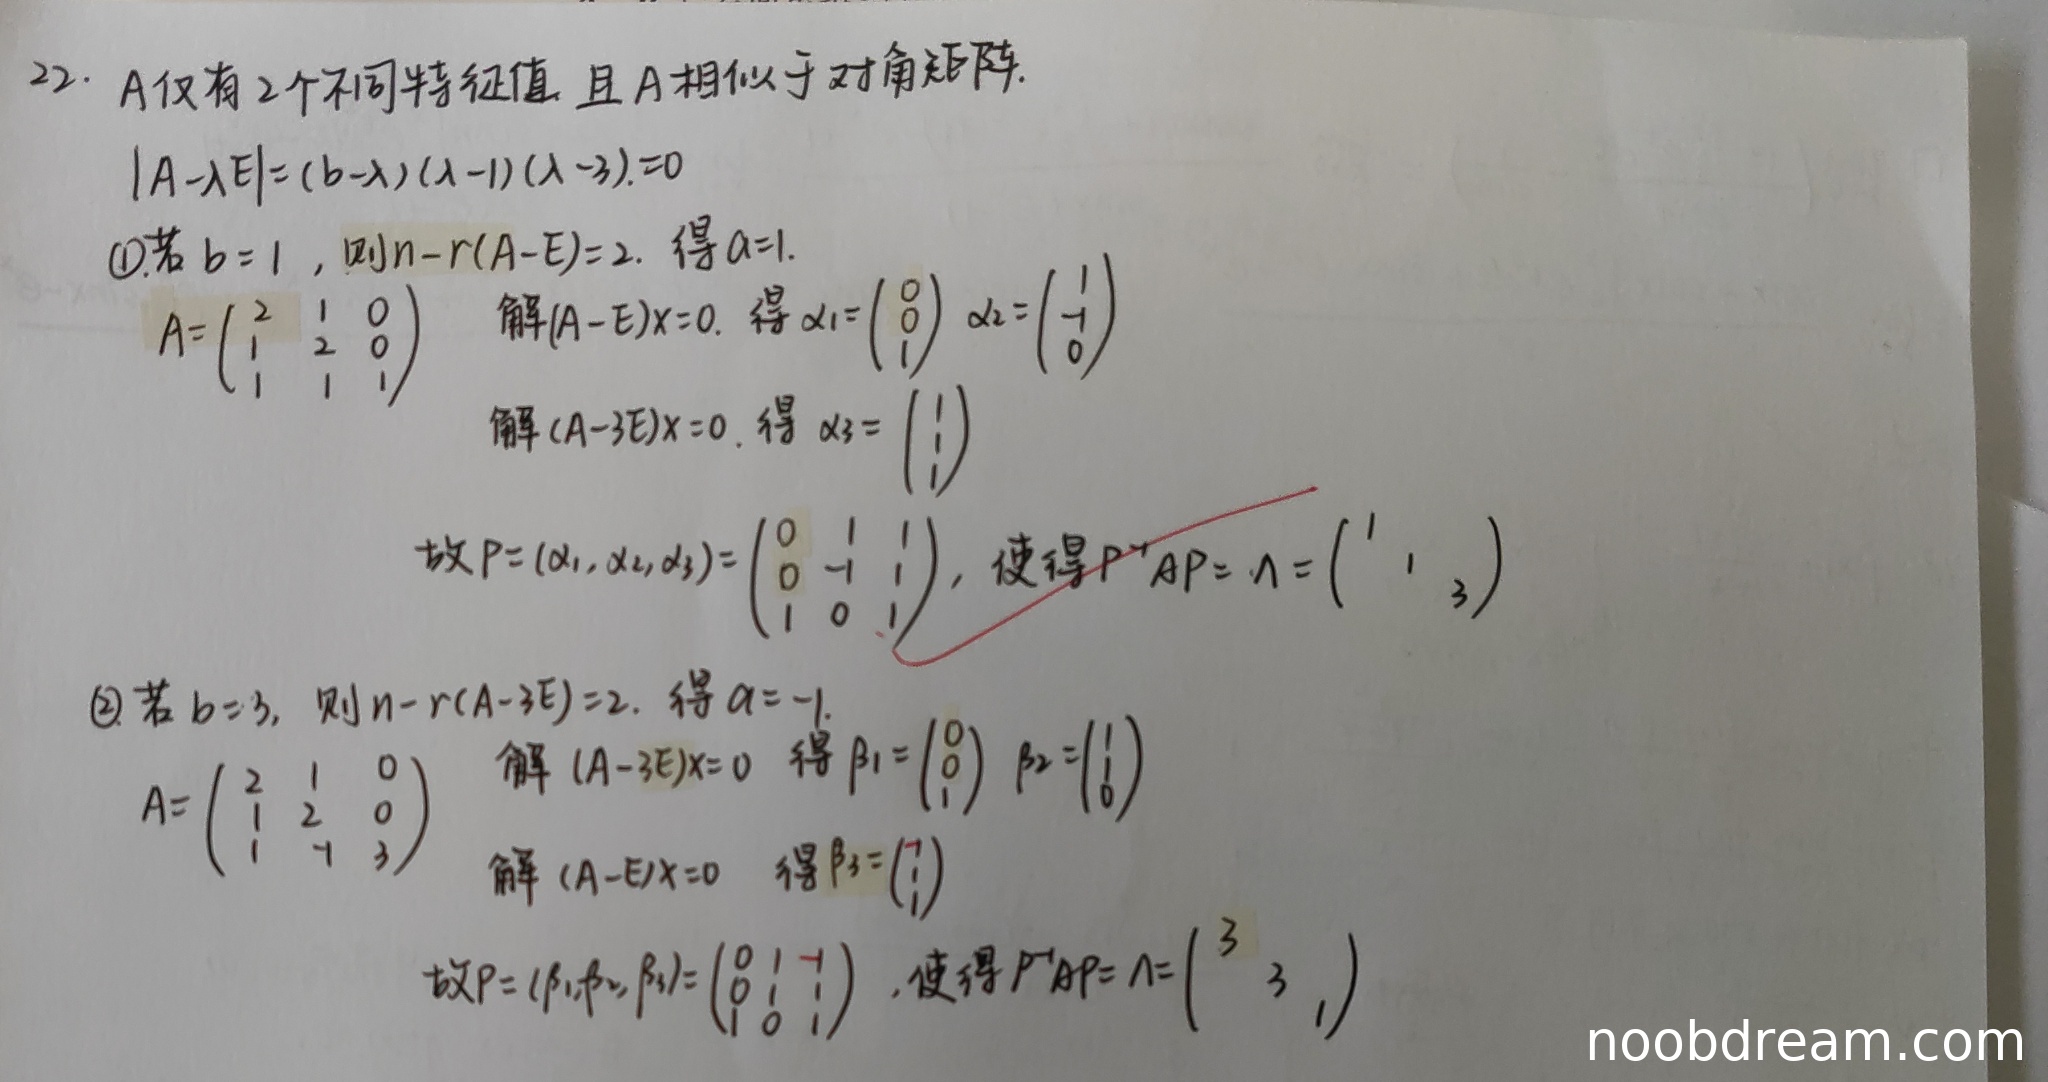 22. A仅有2个不同特征值 且A相似于对角矩阵.
|A-λE|=(b-λ)(λ-1)(λ-3).=0
①.若 b=1, 则n-r(A-E)=2. 得a=1.
A=(2 1 0
1 2 0
1 1 1) 解(A-E)x=0. 得 α1=(0 0 1) α2=(1 -1 0)
解(A-3E)x=0. 得 α3=(1 1 1)
故P=(α1,α2,α3)=(0 1 1
0 -1 1
1 0 1), 使得P⁻¹AP=Λ=(1 1 3)
②.若 b=3, 则n-r(A-3E)=2. 得a=-1.
A=(2 1 0
1 2 0
1 -1 3) 解(A-3E)x=0 得 β1=(0 0 1) β2=(1 1 0)
解(A-E)x=0 得β3=(-1 1 1)
故P=(β1,β2,β3)=(0 1 -1
0 1 1
1 0 1), 使得P⁻¹AP=Λ=(3 3 1)
noobdream.com